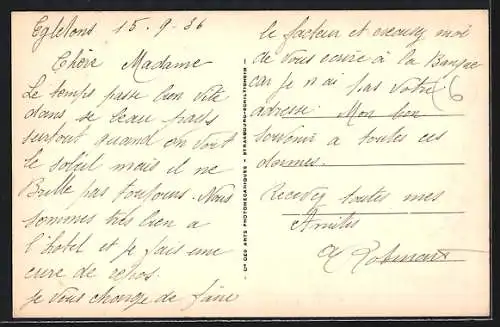 Egletons 15-9-36
Chère Madame
Le temps passe bien vite
dans se beau pays
surtout quand on voit
le soleil mais il ne
Brille pas toujours. Nous
sommes très bien a
l'hotel et je fais une
cure de repos.
Je vous charge de faire
le facteur et excusez moi
de vous ecrire à la Banque
car je n ai pas votre
adresse. Mon bon
souvenir a toutes ces
dames.
Recevez toutes mes
Amitiés
Cie DES ARTS PHOTOMECANIQUES - STRASBOURG-SCHILTIGHEIM